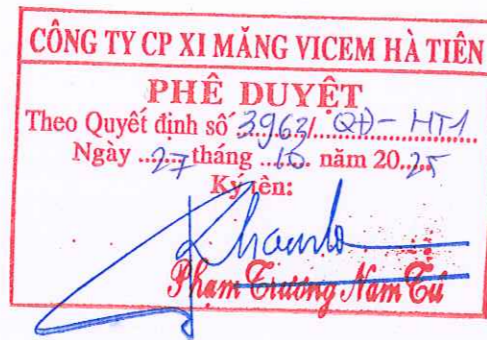 CÔNG TY CP XI MĂNG VICEM HÀ TIÊN
PHÊ DUYỆT
Theo Quyết định số 3963/ QĐ-HT1
Ngày 27 tháng 10 năm 2025
Ký tên:
Phạm Trương Nam Tú